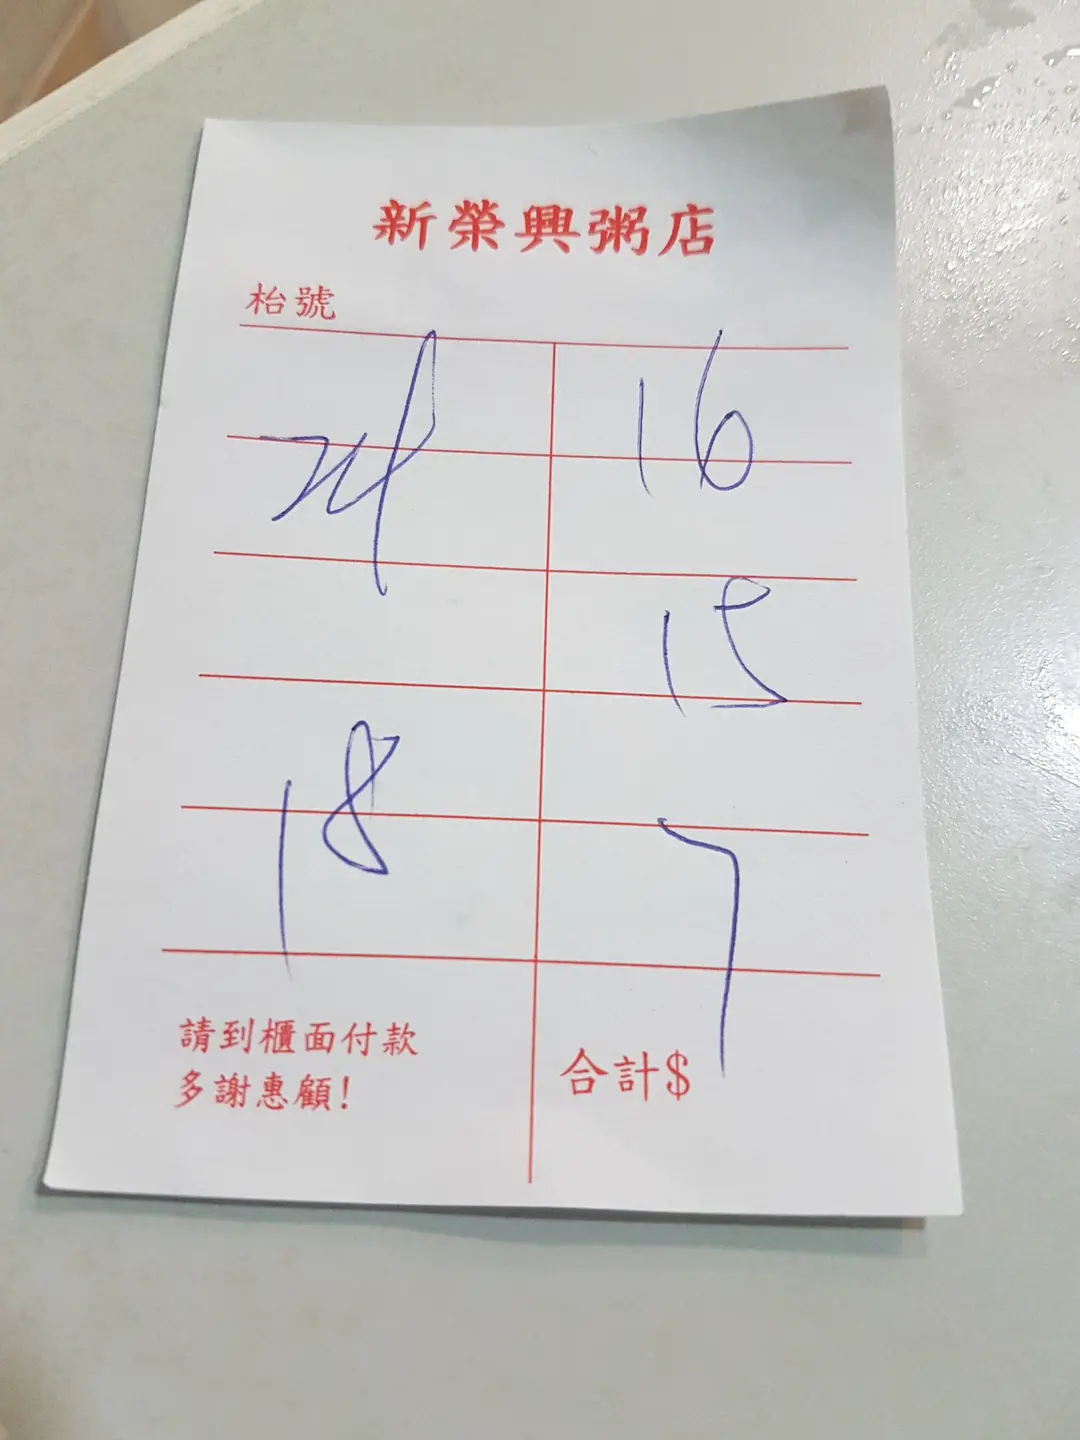 新榮興粥店
枱號
16
15
18
7
請到櫃面付款
多謝惠顧!
合計$